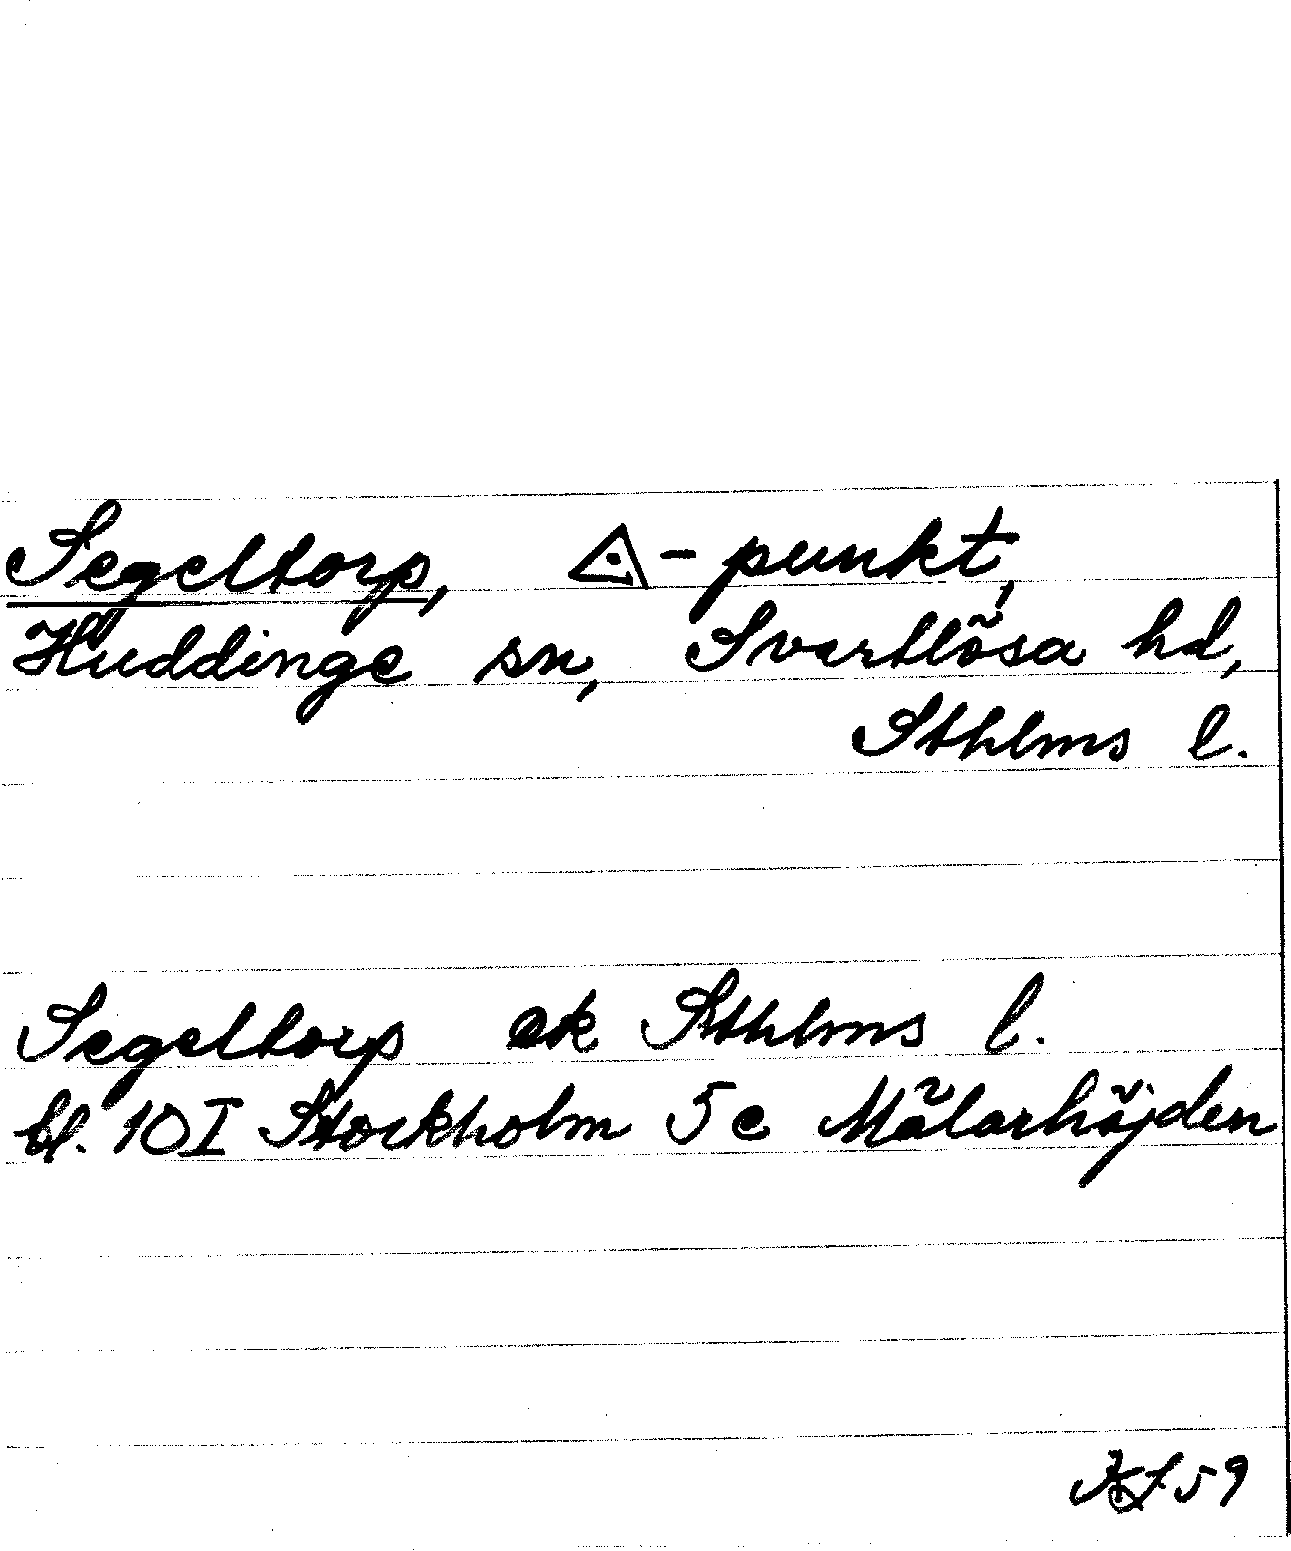 Segeltorp, △-punkt,
Huddinge sn, Svartlösa hd,
Sthlms l.
Segeltorp ek Sthlms l.
bl. 10 I Stockholm 5 e Mälarhöjden
59